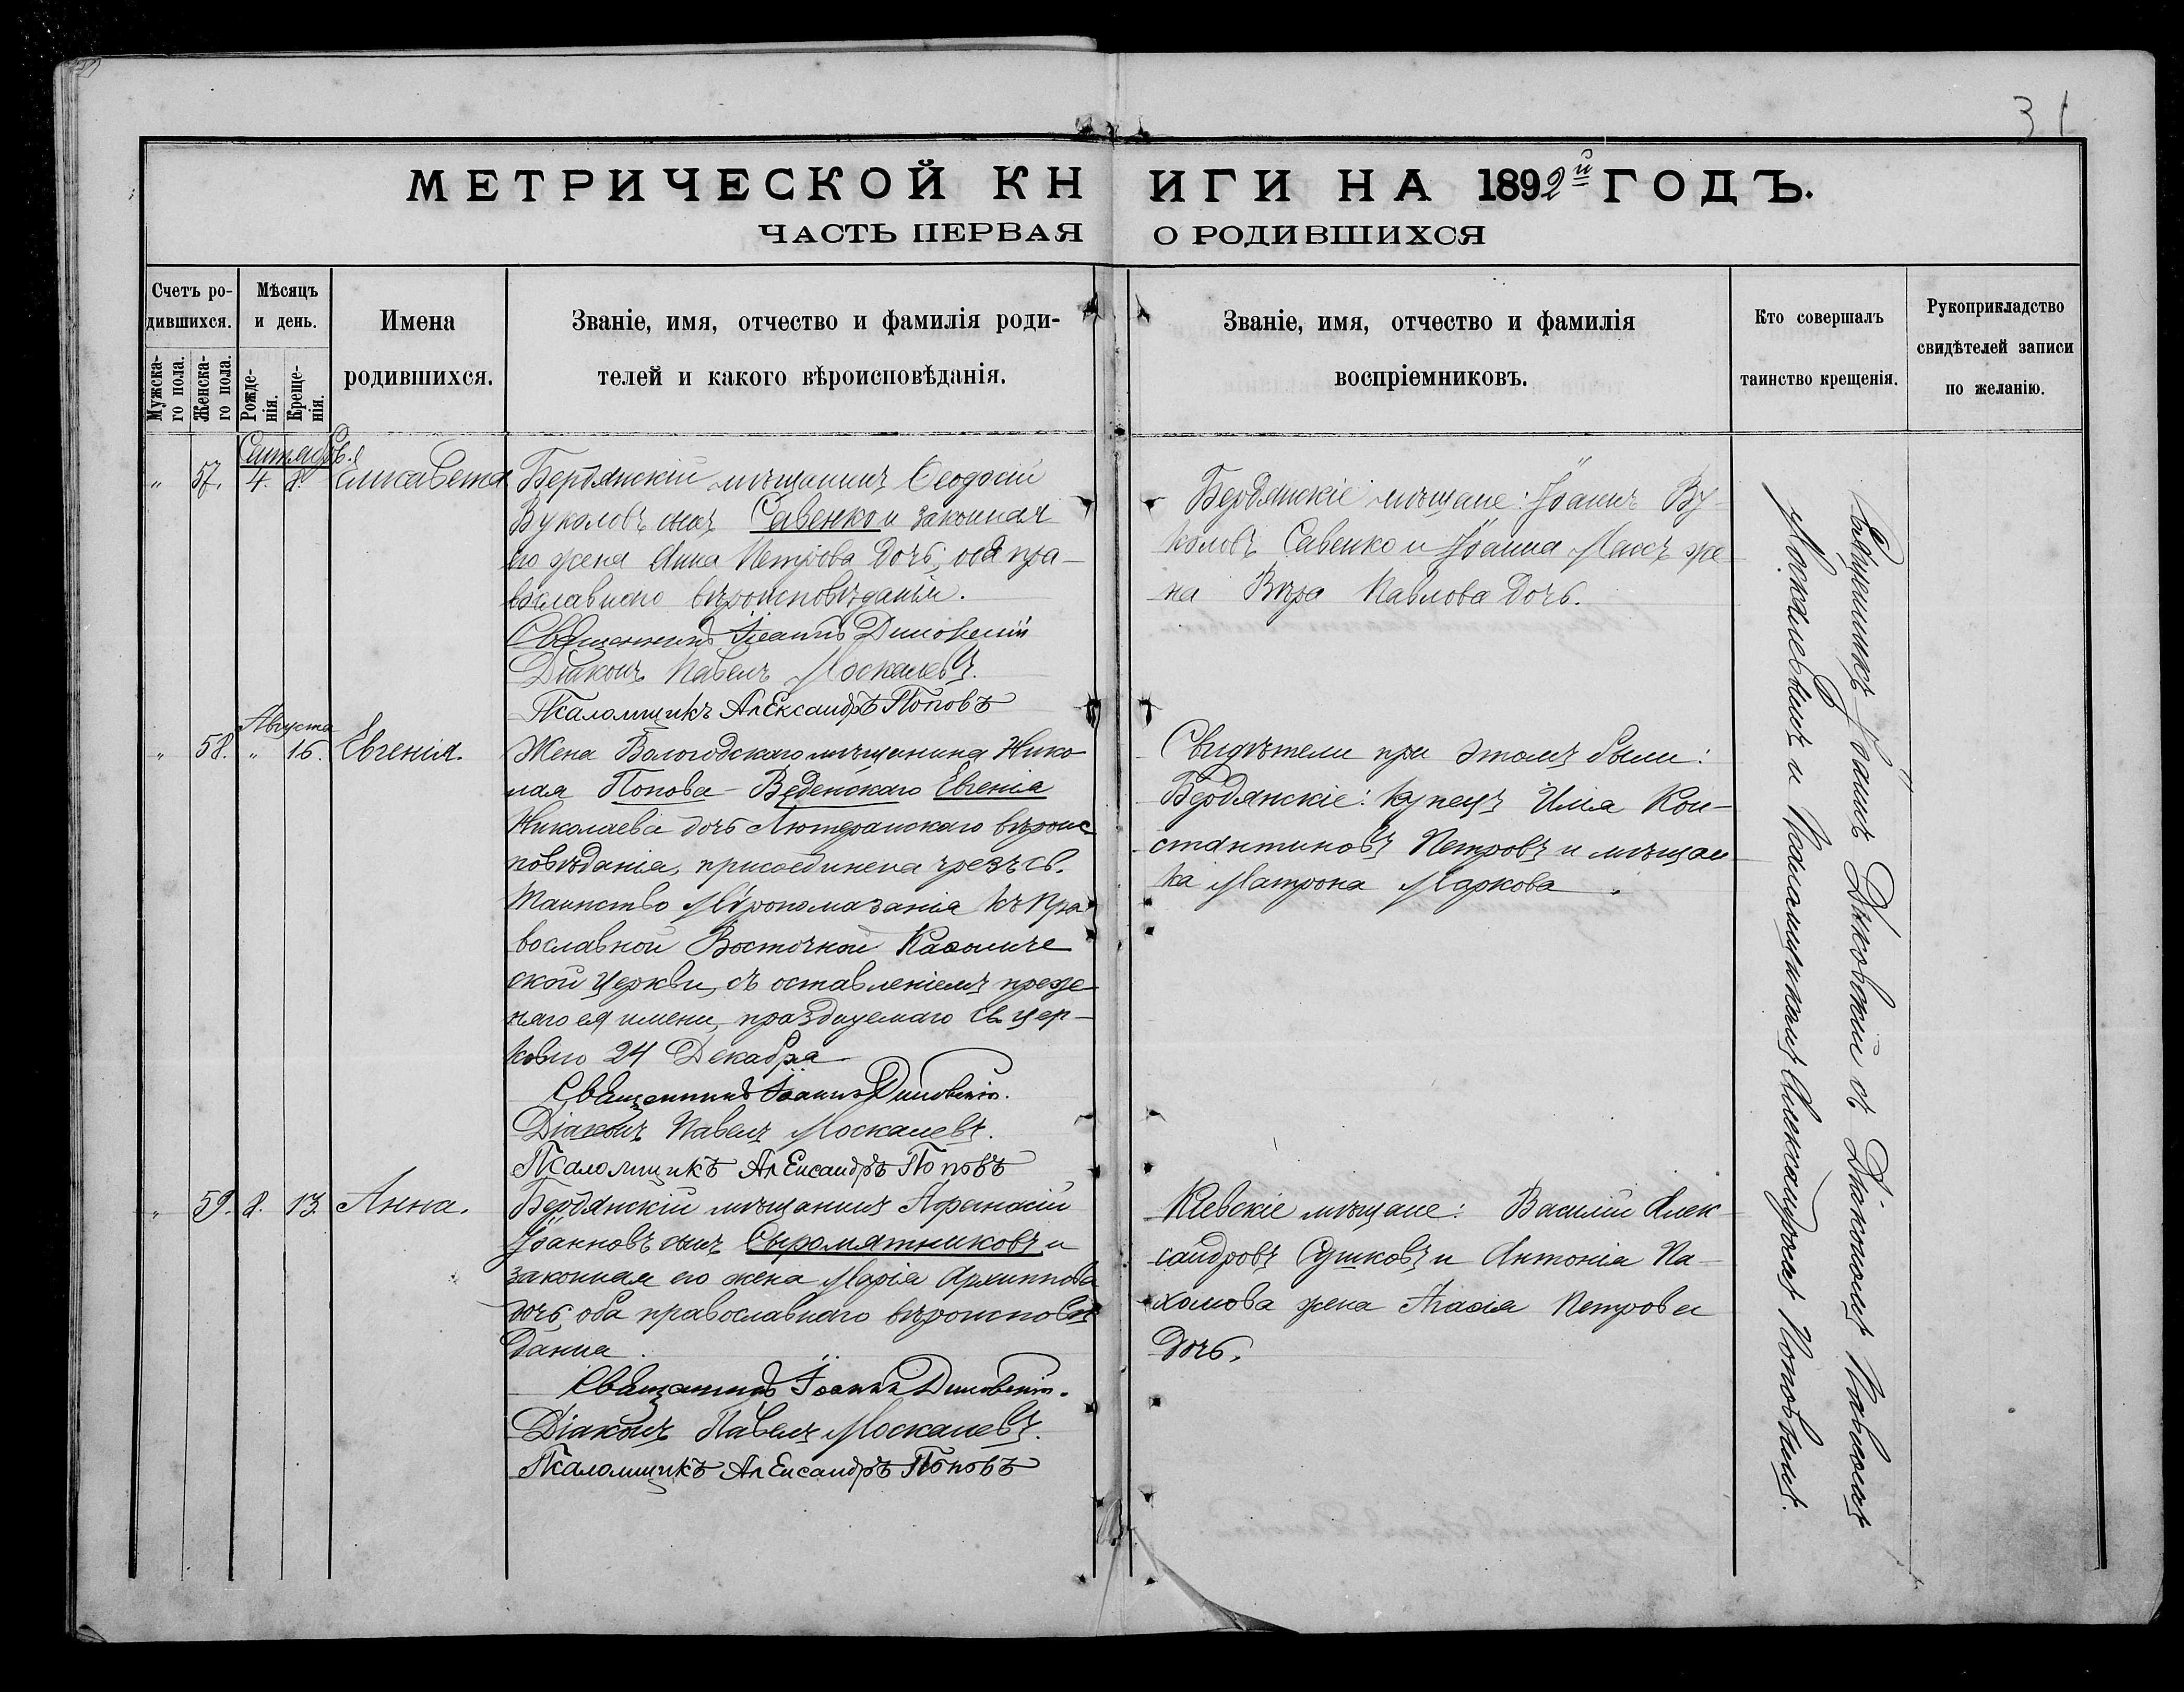 31
МЕТРИЧЕСКОЙ КНИГИ НА 1892й ГОДЪ.
ЧАСТЬ ПЕРВАЯ О РОДИВШИХСЯ
Счетъ ро-
дившихся.
Мужска-
го пола.
Женска-
го пола.
Мѣсяцъ
и день.
Рожде-
нія.
Креще-
нія.
Имена
родившихся.
Званіе, имя, отчество и фамилія роди-
телей и какого вѣроисповѣданія.
Званіе, имя, отчество и фамилія
воспріемниковъ.
Кто совершалъ
таинство крещенія.
Рукоприкладство
свидѣтелей записи
по желанію.
Сентябрь.
" 57. 4. 8. Елисавета
Бердянскій мѣщанинъ Ѳеодосій
Вуколовъ сынъ Савенко и законная
его жена Анна Петрова дочь, оба пра-
вославнаго вѣроисповѣданія.
Священникъ Іоаннъ Диковскій
Діаконъ Павелъ Москалевъ.
Псаломщикъ Александръ Поповъ
Бердянскіе мѣщане: Іоаннъ Ву-
коловъ Савенко и Іоанна Массъ же-
на Вѣра Павлова дочь.
Августа
" 58. " 16. Евгенія.
Жена Вологодскаго мѣщанина Нико-
лая Попова-Веденскаго Евгенія
Николаева дочь Лютеранскаго вѣроис
повѣданія, присоединена чрезъ св.
Таинство Мѵропомазанія къ Пра
вославной Восточной Каѳоличе
ской Церкви, съ оставленіемъ преж-
няго ея имени, празднуемаго Св. цер-
ковію 24 Декабря
Священникъ Іоаннъ Диковскій.
Діаконъ Павелъ Москалевъ.
Псаломщикъ Александръ Поповъ
Свидѣтели при этомъ были:
Бердянскіе: купецъ Илія Кон-
стантиновъ Петровъ и мѣщан-
ка Матрона Маркова.
" 59. 8. 13. Анна.
Бердянскій мѣщанинъ Аѳанасій
Іоанновъ сынъ Сыромятниковъ и
законная его жена Марія Архиппова
дочь, оба православнаго вѣроисповѣ
данія.
Священникъ Іоаннъ Диковскій.
Діаконъ Павелъ Москалевъ.
Псаломщикъ Александръ Поповъ
Кіевскіе мѣщане: Василій Алек
сандровъ Сушковъ и Антонія Па-
хомова жена Агаѳія Петрова
дочь.
Священникъ Іоаннъ Диковскій съ Діакономъ Павломъ
Москалевымъ и Псаломщикомъ Александромъ Поповымъ.